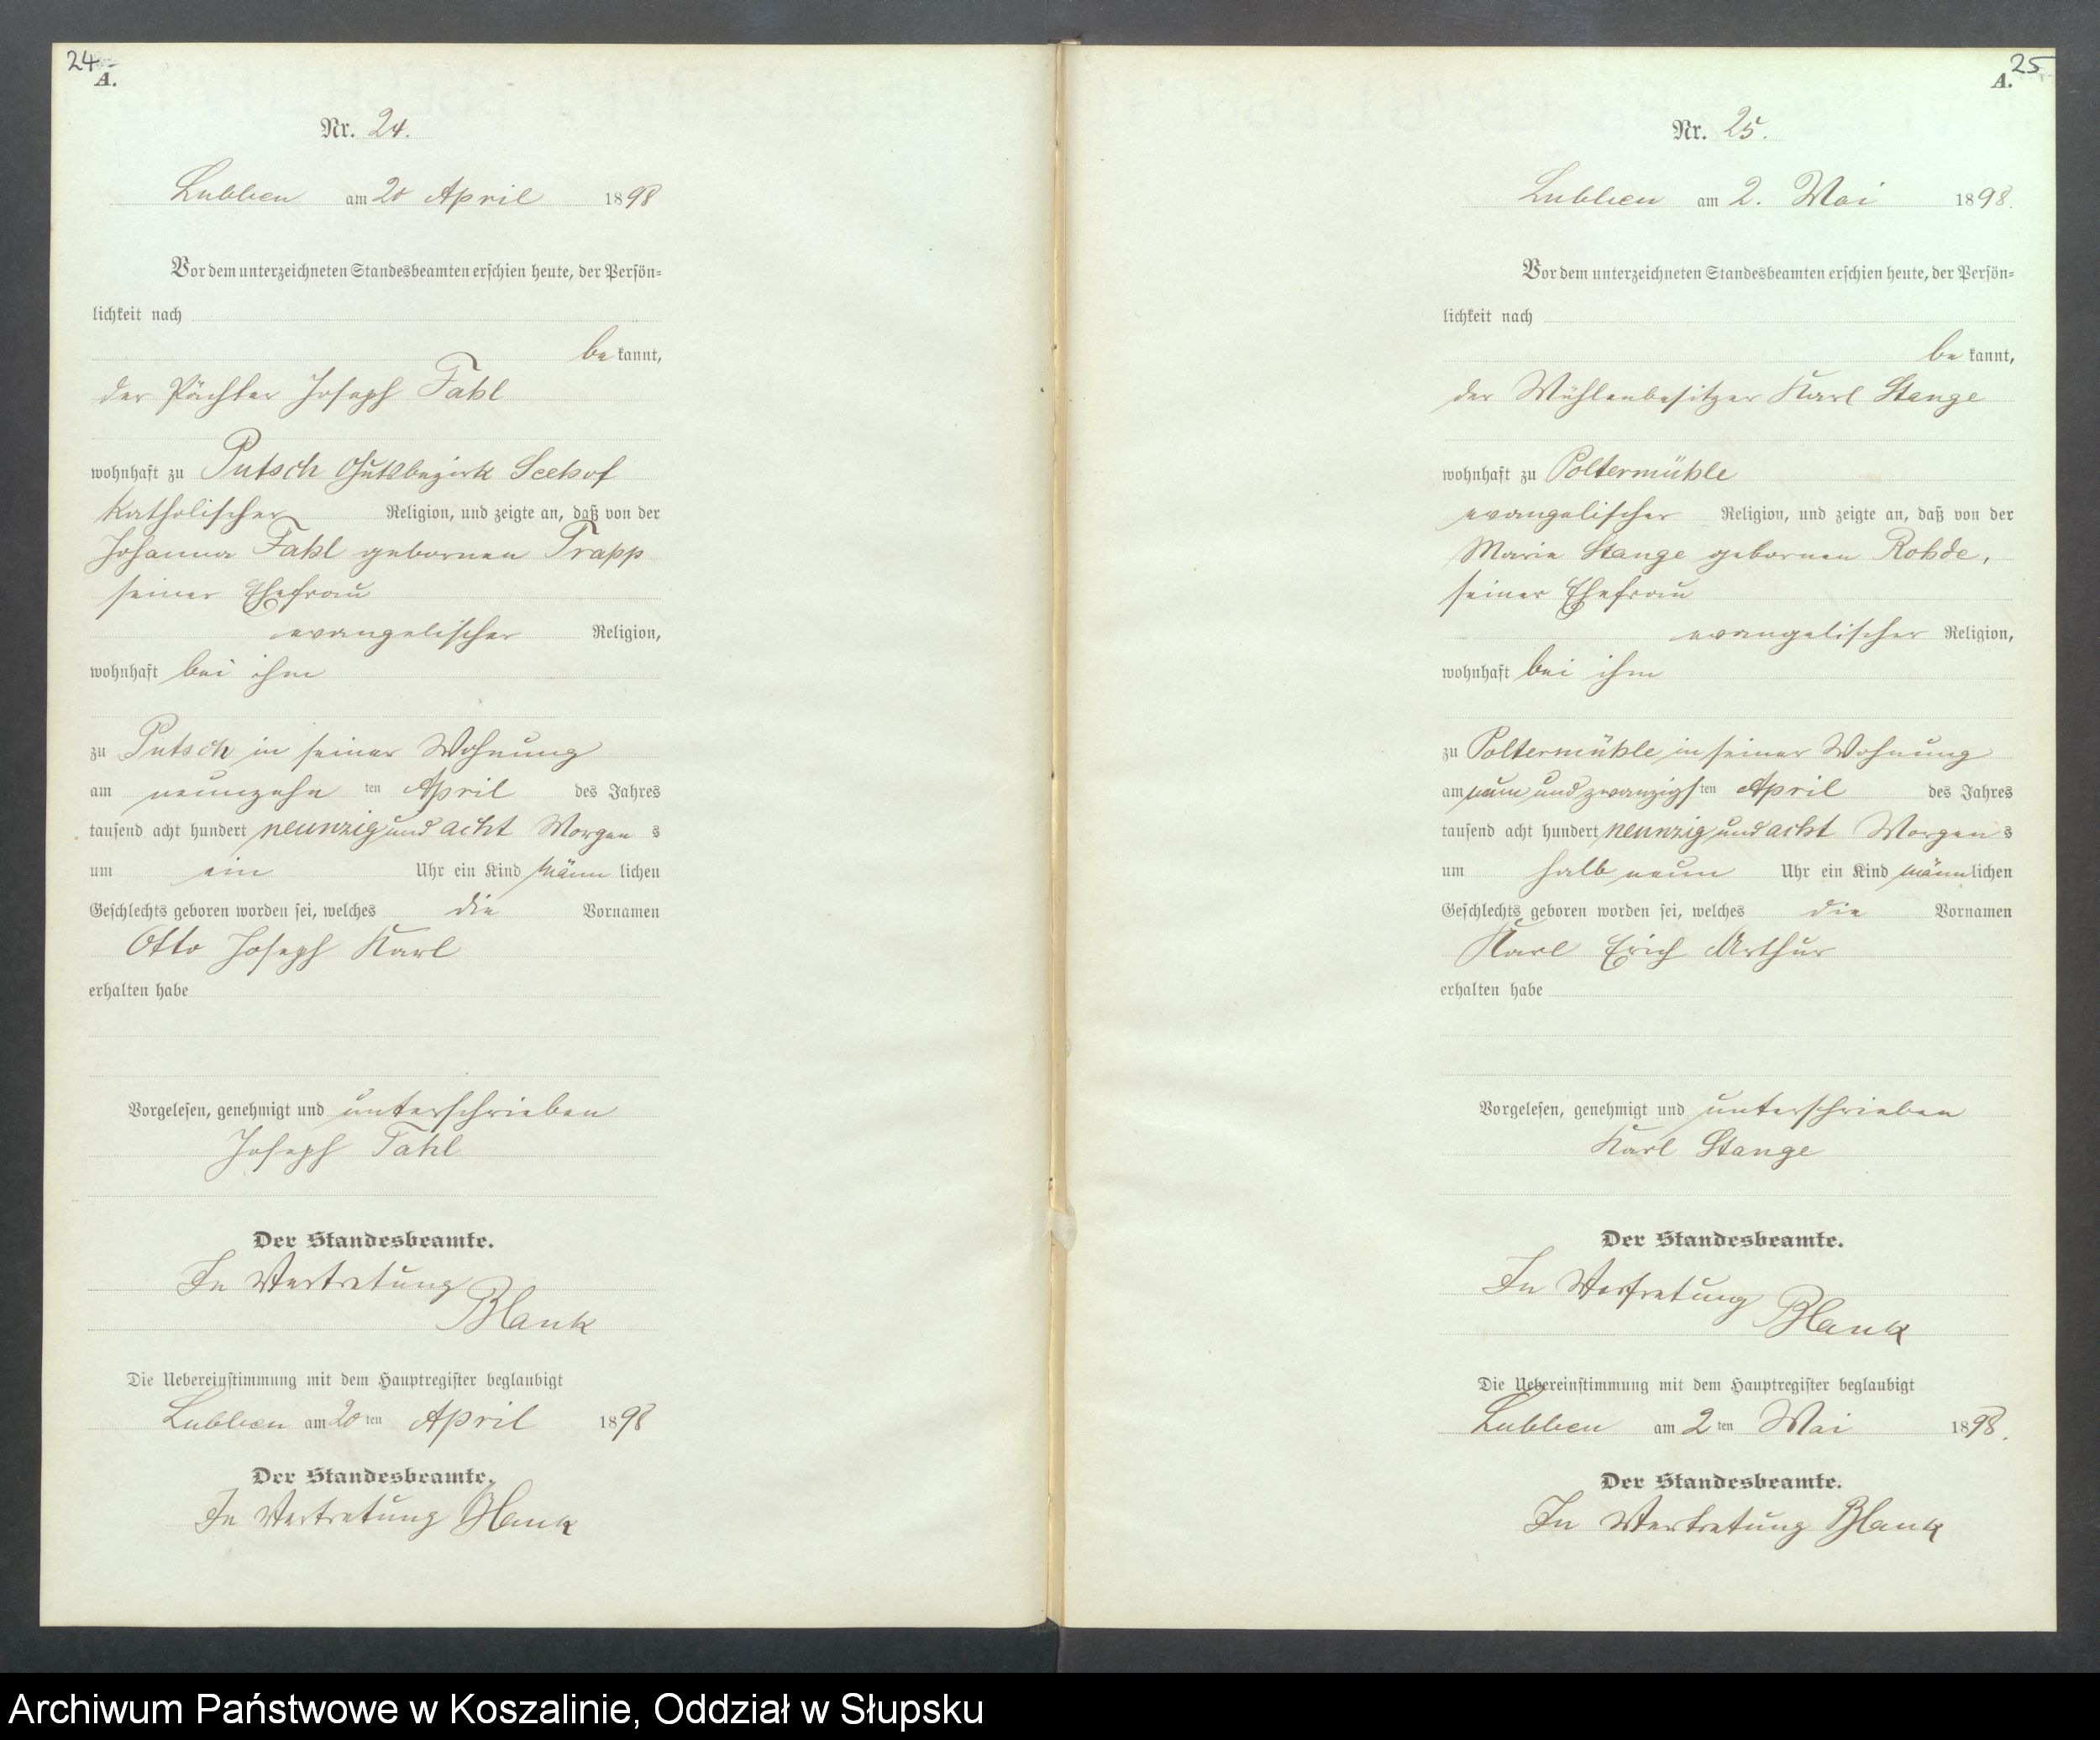 24
A.
Nr. 24.
Lubben am 20 April 1898
Vor dem unterzeichneten Standesbeamten erschien heute, der Persön-
lichkeit nach
be kannt,
der Pächter Joseph Fahl
wohnhaft zu Putsch Gutsbezirk Seehof
katholischer Religion, und zeigte an, daß von der
Johanna Fahl gebornen Trapp
seiner Ehefrau
evangelischer Religion,
wohnhaft bei ihm
zu Putsch in seiner Wohnung
am neunzehn ten April des Jahres
tausend acht hundert neunzig und acht Morgen s
um ein Uhr ein Kind männ lichen
Geschlechts geboren worden sei, welches die Vornamen
Otto Joseph Karl
erhalten habe
Vorgelesen, genehmigt und unterschrieben
Joseph Fahl
Der Standesbeamte.
In Vertretung
Blank
Die Uebereinstimmung mit dem Hauptregister beglaubigt
Lubben am 20 ten April 1898
Der Standesbeamte.
In Vertretung Blank
25
A.
Nr. 25.
Lubben am 2. Mai 1898.
Vor dem unterzeichneten Standesbeamten erschien heute, der Persön-
lichkeit nach
be kannt,
der Mühlenbesitzer Karl Stange
wohnhaft zu Poltermühle
evangelischer Religion, und zeigte an, daß von der
Marie Stange gebornen Rohde,
seiner Ehefrau
evangelischer Religion,
wohnhaft bei ihm
zu Poltermühle in seiner Wohnung
am neun und zwanzigs ten April des Jahres
tausend acht hundert neunzig und acht Morgen s
um halb neun Uhr ein Kind männ lichen
Geschlechts geboren worden sei, welches die Vornamen
Karl Erich Arthur
erhalten habe
Vorgelesen, genehmigt und unterschrieben
Karl Stange
Der Standesbeamte.
In Vertretung
Blank
Die Uebereinstimmung mit dem Hauptregister beglaubigt
Lubben am 2 ten Mai 1898.
Der Standesbeamte.
In Vertretung Blank
Archiwum Państwowe w Koszalinie, Oddział w Słupsku